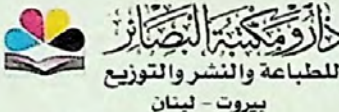 دار ومكتبة البصائر
للطباعة والنشر والتوزيع
بيروت - لبنان